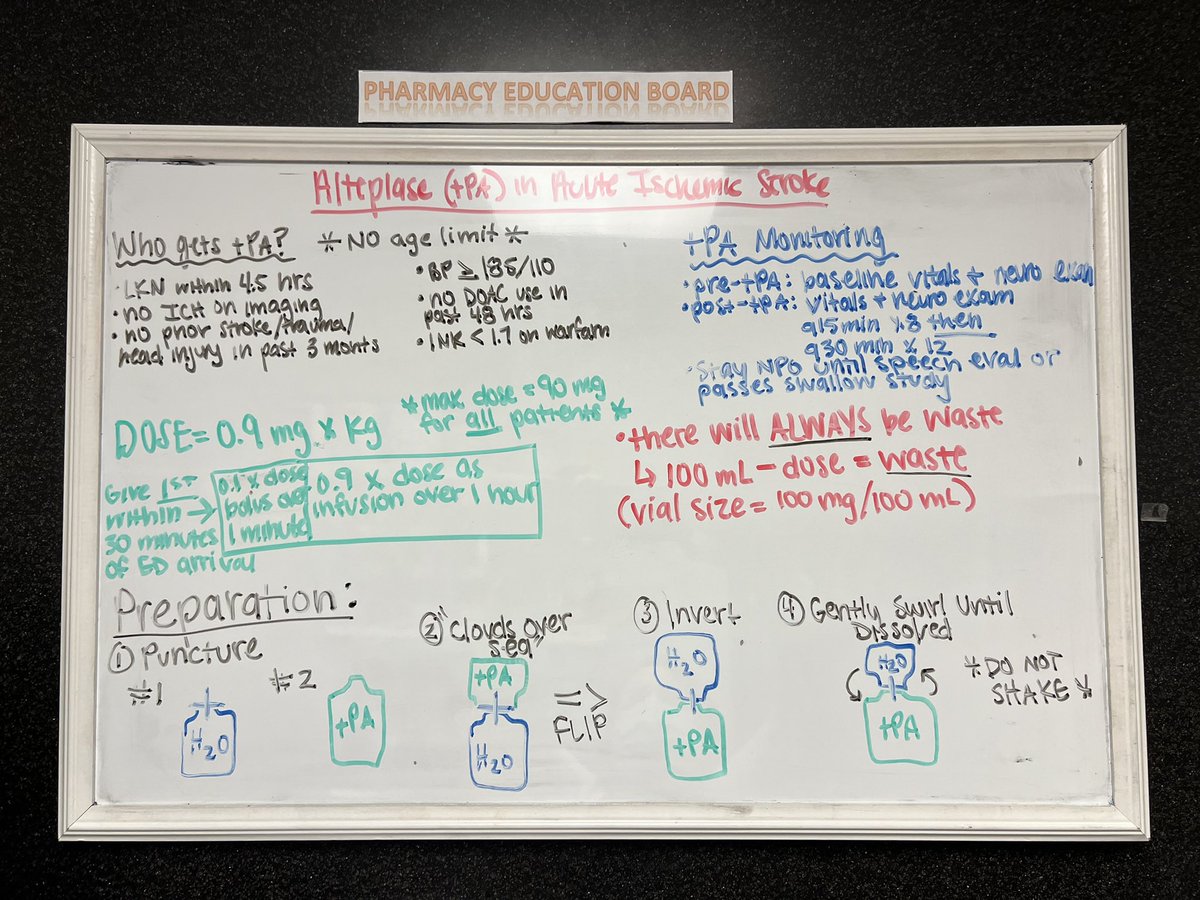 PHARMACY EDUCATION BOARD
Alteplase (tPA) in Acute Ischemic Stroke
Who gets tPA?
* NO age limit *
· LKN within 4.5 hrs
· no ICH on imaging
· no prior stroke/trauma/
head injury in past 3 monts
· BP ≥ 185/110
· no DOAC use in
past 48 hrs
· INR < 1.7 on warfarin
tPA Monitoring
· pre-tPA: baseline vitals + neuro exam
· post-tPA: vitals + neuro exam
q15min x 8 then
q30 min x 12
· Stay NPO until speech eval or
passes swallow study
DOSE = 0.9 mg x kg
* max dose = 90 mg
for all patients *
Give 1st
within →
30 minutes
of ED arrival
0.1 x dose
bolus over
1 minute
0.9 x dose as
infusion over 1 hour
· there will ALWAYS be waste
↳ 100 mL - dose = waste
(vial size = 100 mg/100 mL)
Preparation:
① Puncture
#1
H2O
#2
tPA
② "Clouds over
sea"
tPA
H2O
=>
FLIP
③ Invert
H2O
tPA
④ Gently Swirl Until
Dissolved
H2O
tPA
* DO NOT
SHAKE *